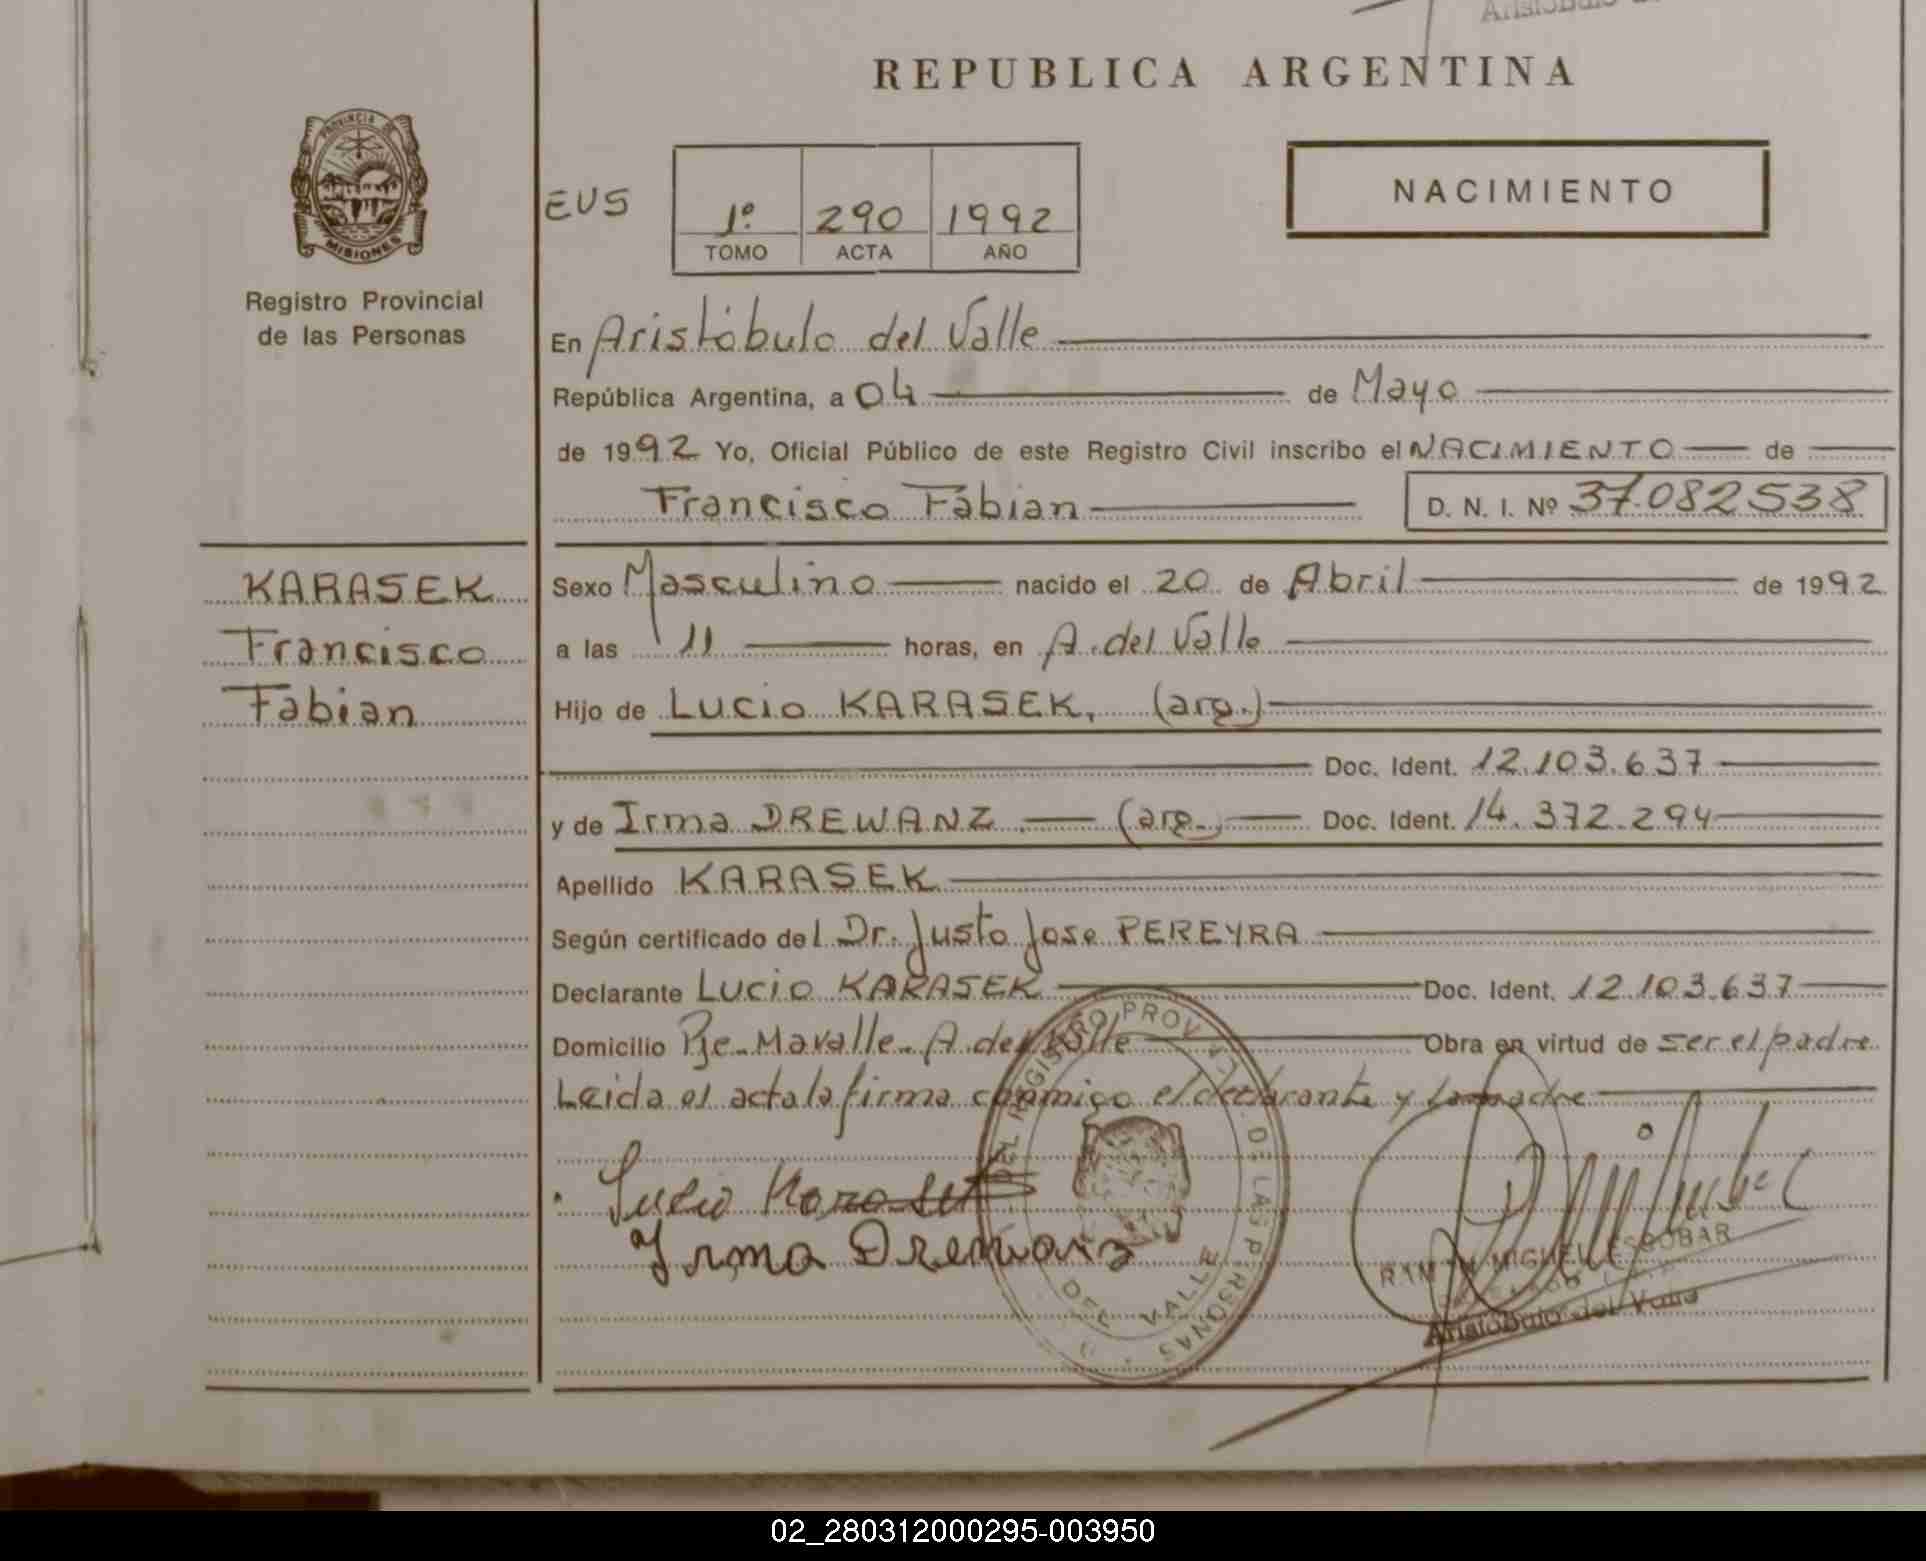 Aristóbulo
REPUBLICA ARGENTINA
PROVINCIA DE
MISIONES
Registro Provincial
de las Personas
EUS
1º 290 1992
TOMO ACTA AÑO
NACIMIENTO
En Aristóbulo del Valle
República Argentina, a 04 de Mayo
de 1992 Yo, Oficial Público de este Registro Civil inscribo el NACIMIENTO de
Francisco Fabian D. N. I. Nº 37.082538
KARASEK
Francisco
Fabian
Sexo Masculino nacido el 20 de Abril de 1992
a las 11 horas, en A. del Valle
Hijo de Lucio KARASEK, (arg.)
Doc. Ident. 12.103.637
y de Irma DREWANZ (arg.) Doc. Ident. 14.372.294
Apellido KARASEK
Según certificado del Dr. Justo Jose PEREYRA
Declarante Lucio KARASEK Doc. Ident. 12.103.637
Domicilio Pje. Mavalle. A. del Valle Obra en virtud de ser el padre
Leida el acta la firma conmigo el declarante y la madre
Lucio Karasek
Irma Drewanz
DEL REGISTRO PROV DE LAS PERSONAS
DEL VALLE
RAMON MIGUEL ESCOBAR
Aristóbulo del Valle
02_280312000295-003950